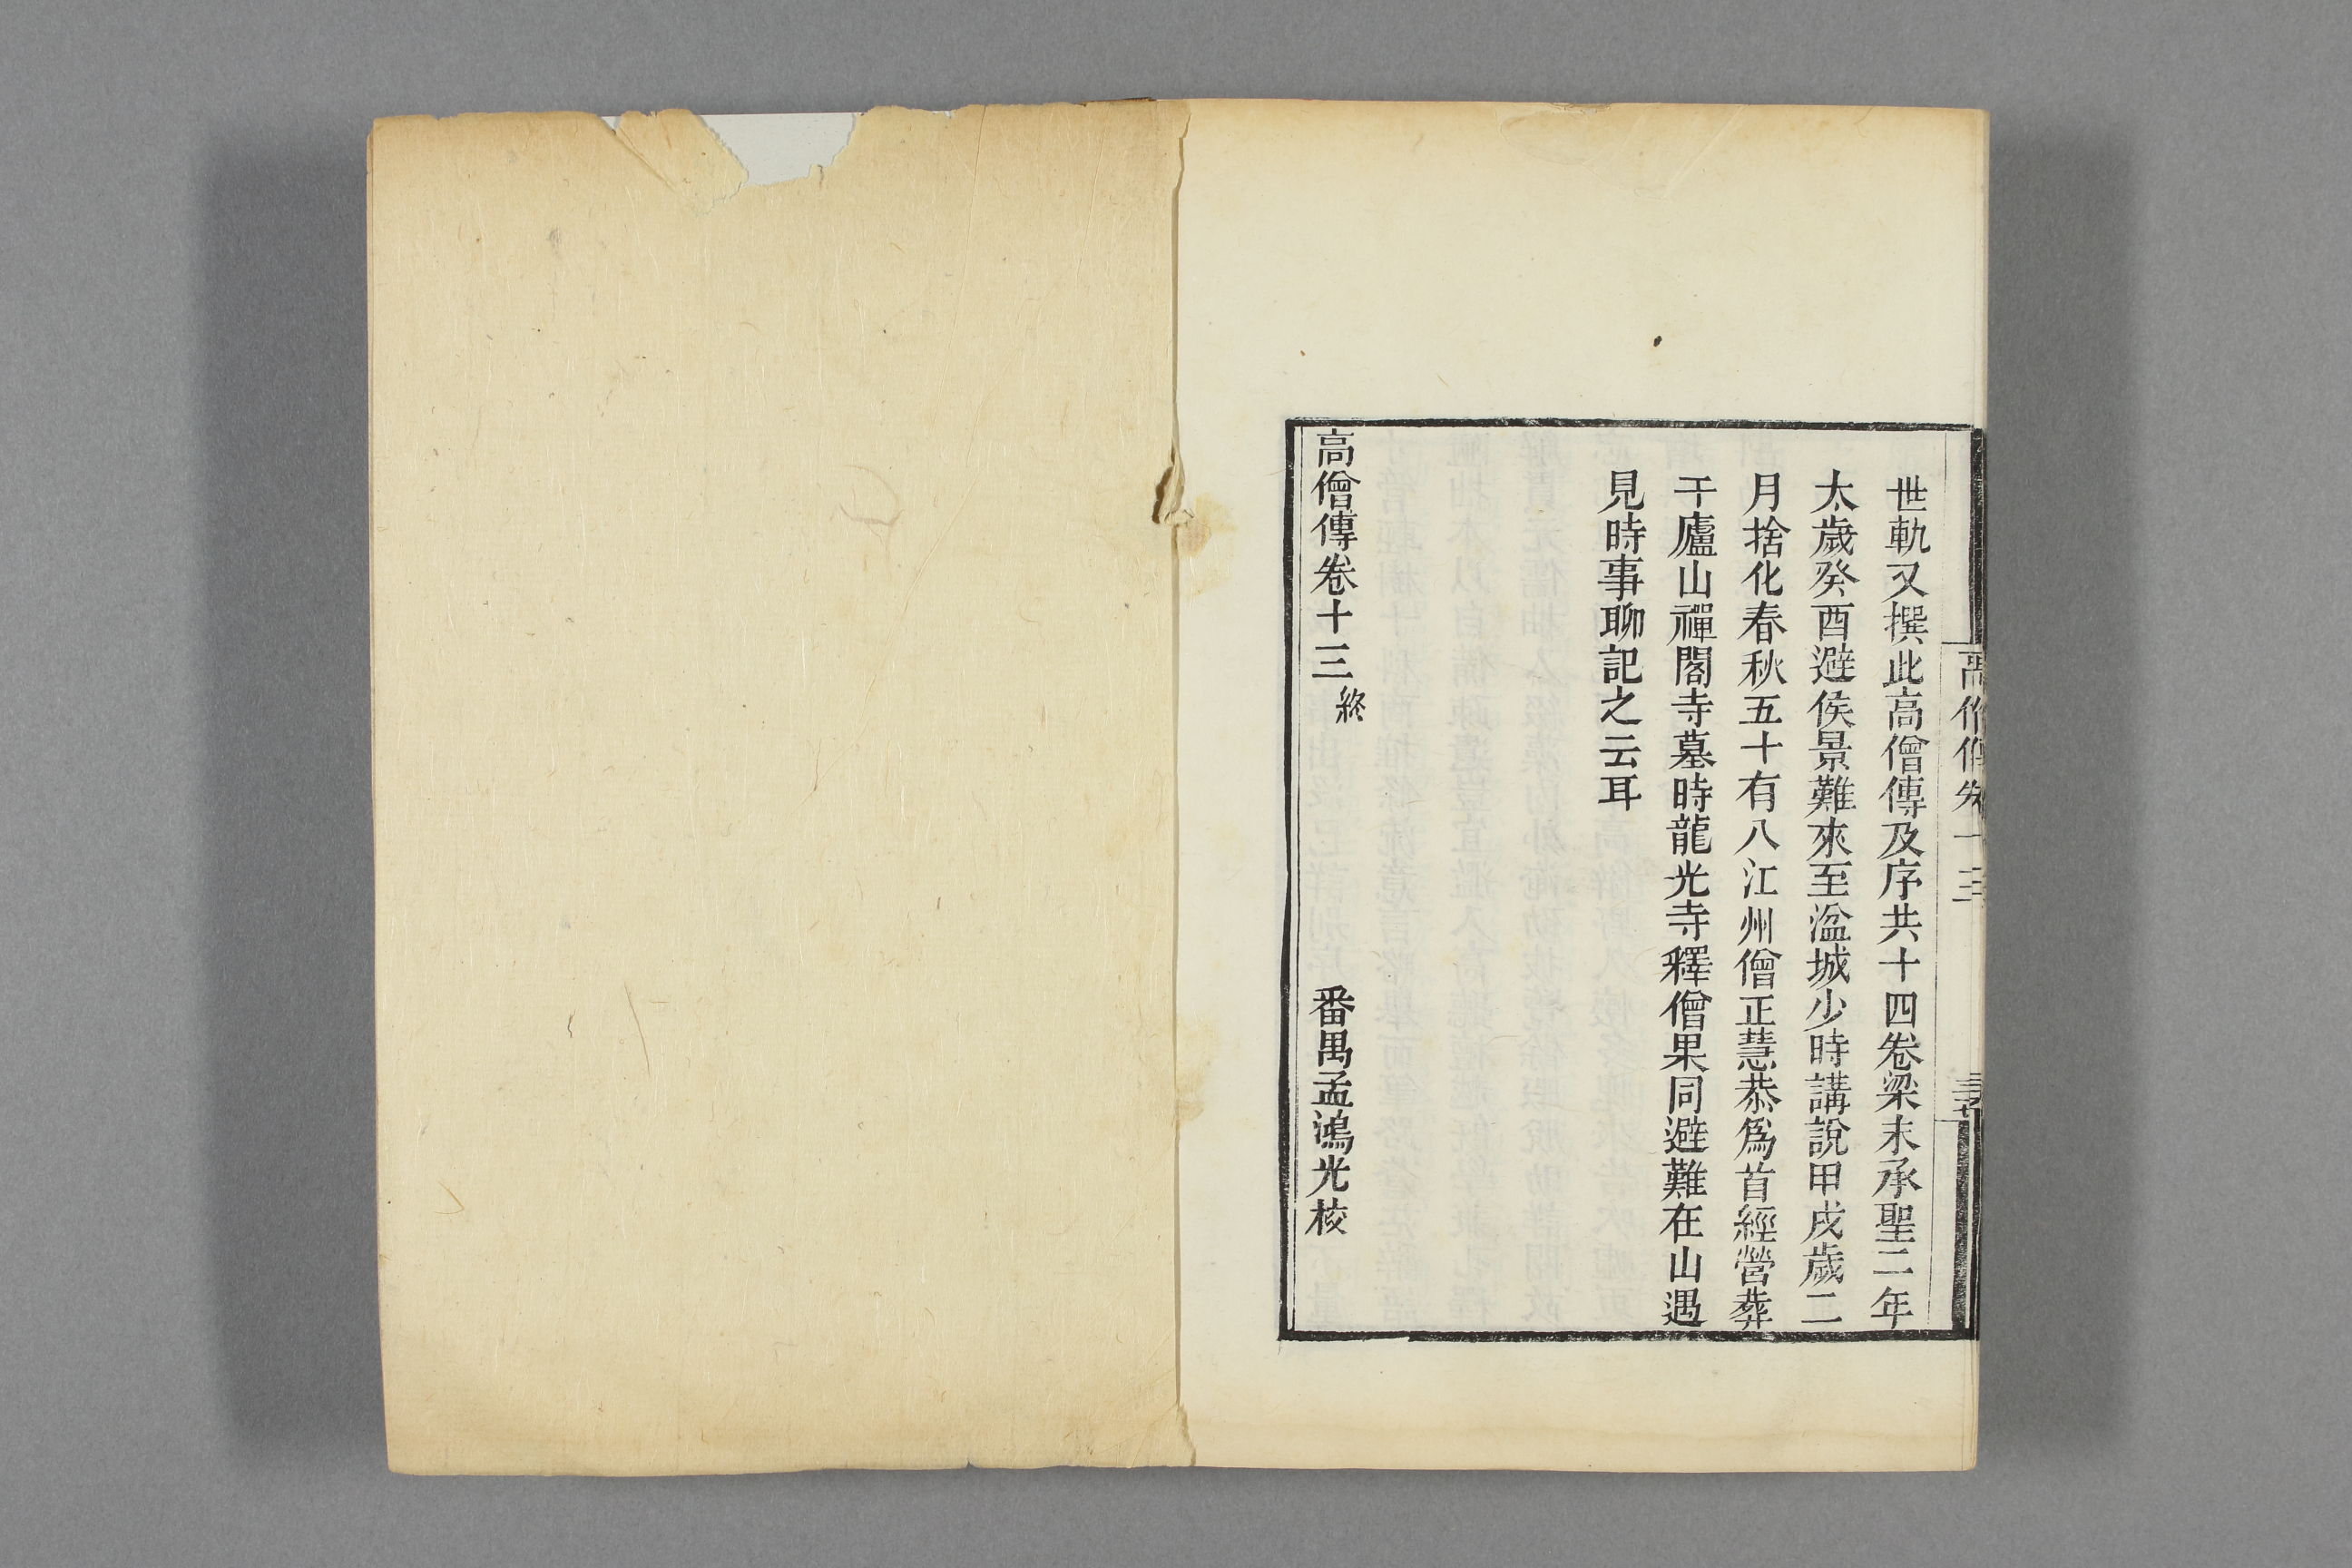 世軌又撰此高僧傳及序共十四卷梁末承聖二年
太歲癸酉避侯景難來至湓城少時講說甲戌歲二
月捨化春秋五十有八江州僧正慧恭爲首經營葬
于廬山禪閣寺墓時龍光寺釋僧果同避難在山遇
見時事聊記之云耳
高僧傳卷十三終
番禺孟鴻光校